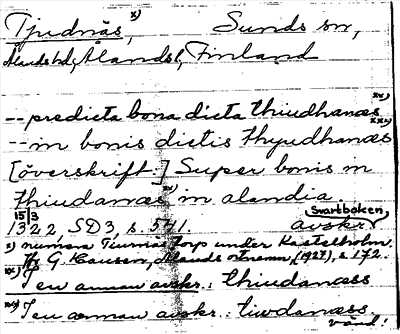 Tjudnäs, x) Sunds sn,
Ålands hd, Ålands l, Finland
-- predicta bona dicta thiudhanæs xx)
-- in bonis dictis thyudhanæs xxx)
[överskrift:] Super bonis in
thiudanæs xx) in alandia.
15/3 Svartboken,
1322, SD3, s. 541. avskr.
x) numera Tjurnäs torp under Kastelholm.
G. Hausen, Ålands ortnamn, (1927), s. 172.
xx) I en annan avskr.: thiudanæss
xxx) I en annan avskr.: tiwdanæss
vänd!